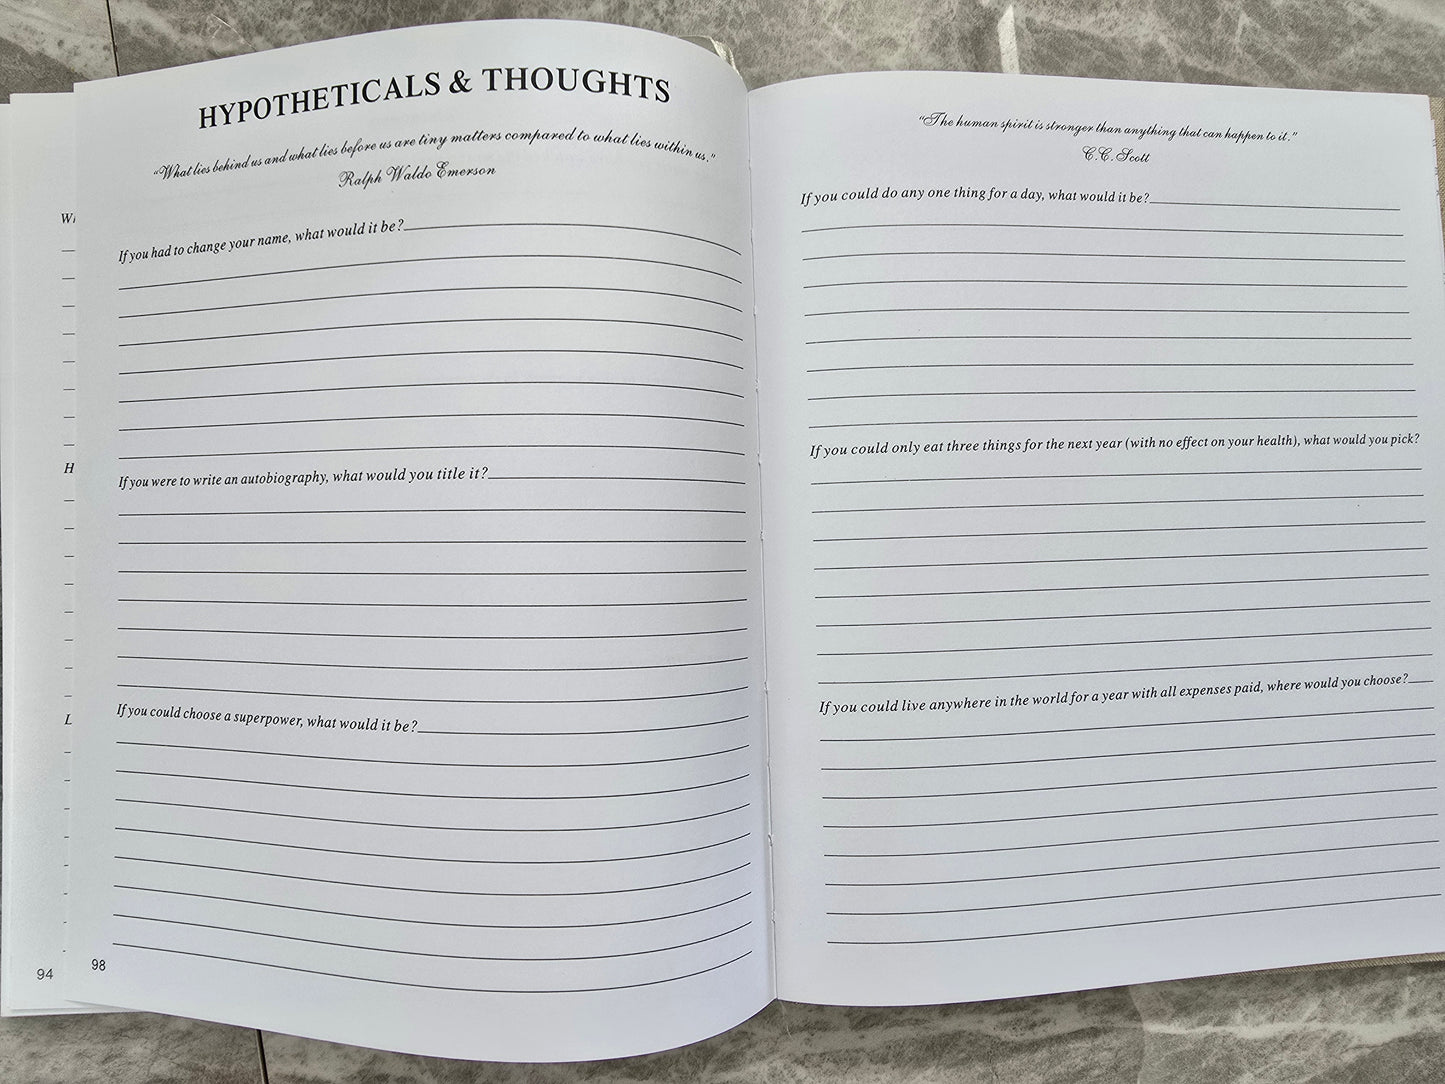 HYPOTHETICALS & THOUGHTS
“What lies behind us and what lies before us are tiny matters compared to what lies within us.”
Ralph Waldo Emerson
If you had to change your name, what would it be?
If you were to write an autobiography, what would you title it?
If you could choose a superpower, what would it be?
98
94
“The human spirit is stronger than anything that can happen to it.”
C.C. Scott
If you could do any one thing for a day, what would it be?
If you could only eat three things for the next year (with no effect on your health), what would you pick?
If you could live anywhere in the world for a year with all expenses paid, where would you choose?